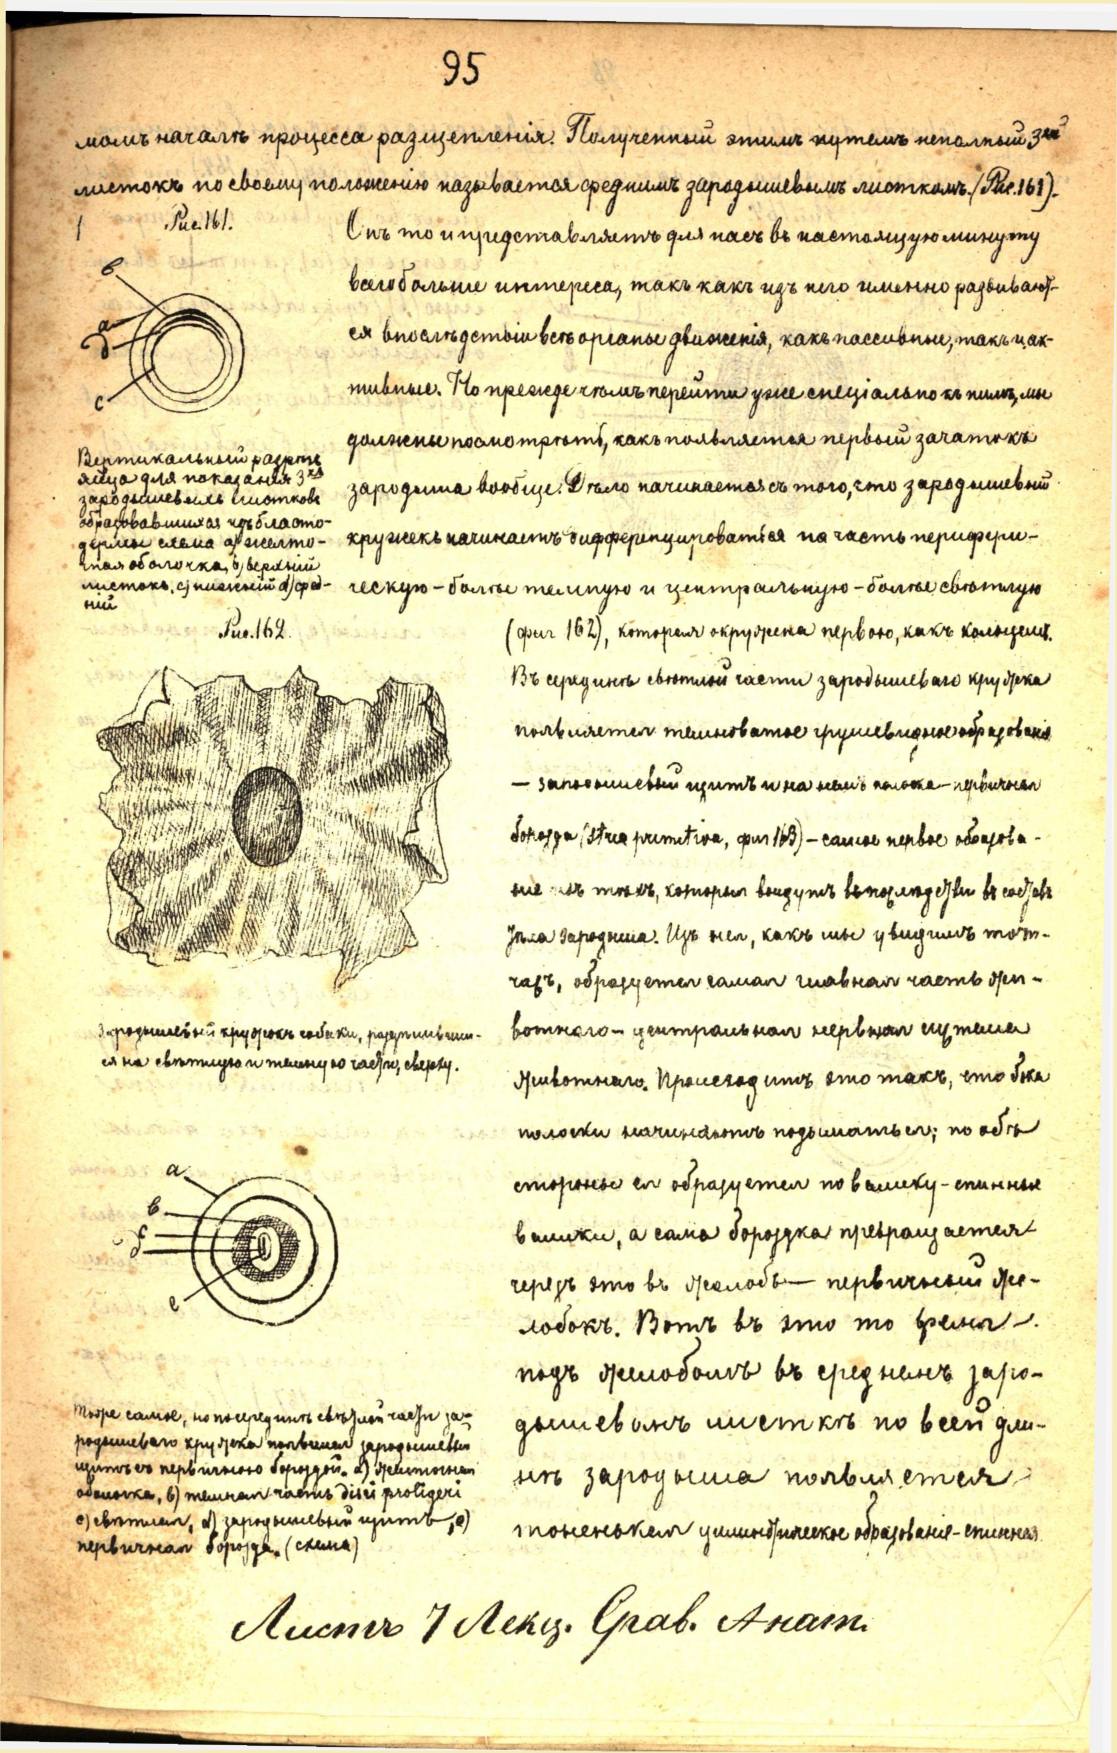 95
момъ началѣ процесса разщепленія. Полученный этимъ путемъ неполный 3ій
листокъ по своему положенію называется среднимъ зародышевымъ листкомъ. (Рис. 161).
Рис. 161.
Онъ то и представляетъ для насъ въ настоящую минуту
всего больше интереса, такъ какъ изъ него именно развивают-
ся впослѣдствіи всѣ органы движенія, какъ пассивные, такъ и ак-
тивные. Но прежде чѣмъ перейти уже спеціально къ нимъ, мы
должны посмотрѣть, какъ появляется первый зачатокъ
зародыша вообще. Дѣло начинается съ того, что зародышевый
кружекъ начинаетъ дифференцироваться на часть перифери-
ческую – болѣе темную и центральную – болѣе свѣтлую
в
а
д
с
Вертикальный разрѣзъ
яйца для показанія 3хъ
зародышевыхъ листковъ
образовавшихся изъ бласто-
дермы схема а) желто-
чная оболочка, в) верхній
листокъ, с) нижній d) сред-
ній
Рис. 162.
(фиг 162), которая окружена первою, какъ кольцемъ.
Въ серединѣ свѣтлой части зародышеваго кружка
появляется темноватое грушевидное образованіе
— зародышевый щитъ и на немъ полоска – первичная
борозда (Stria primitiva, фиг 163) – самое первое образова-
ніе изъ тѣхъ, которыя войдутъ впослѣдствіи въ составъ
тѣла зародыша. Изъ нея, какъ мы увидимъ тот-
часъ, образуется самая главная часть жи-
вотнаго – центральная нервная система
животнаго. Происходитъ это такъ, что бока
полоски начинаютъ подыматься; по обѣ
стороны ея образуется по валику – спинные
валики, а сама бороздка превращается
черезъ это въ жолобъ — первичный же-
лобокъ. Вотъ въ это то время
подъ желобомъ въ среднемъ заро-
дышевомъ листкѣ по всей дли-
нѣ зародыша появляется
тоненькая цилиндрическое образованіе – спинная
Зародышевый кружокъ собаки, раздѣливший-
ся на свѣтлую и темную части, сверху.
а
в
с
d
е
Тоже самое, но посрединѣ свѣтлой части за-
родышеваго кружка появился зародышевый
щитъ съ первичною бороздой. а) желточная
оболочка, в) темная часть disci proligeri
с) свѣтлая, d) зародышевый щитъ, е)
первичная борозда. (схема)
Листъ 7 Лекц. Срав. Анат.